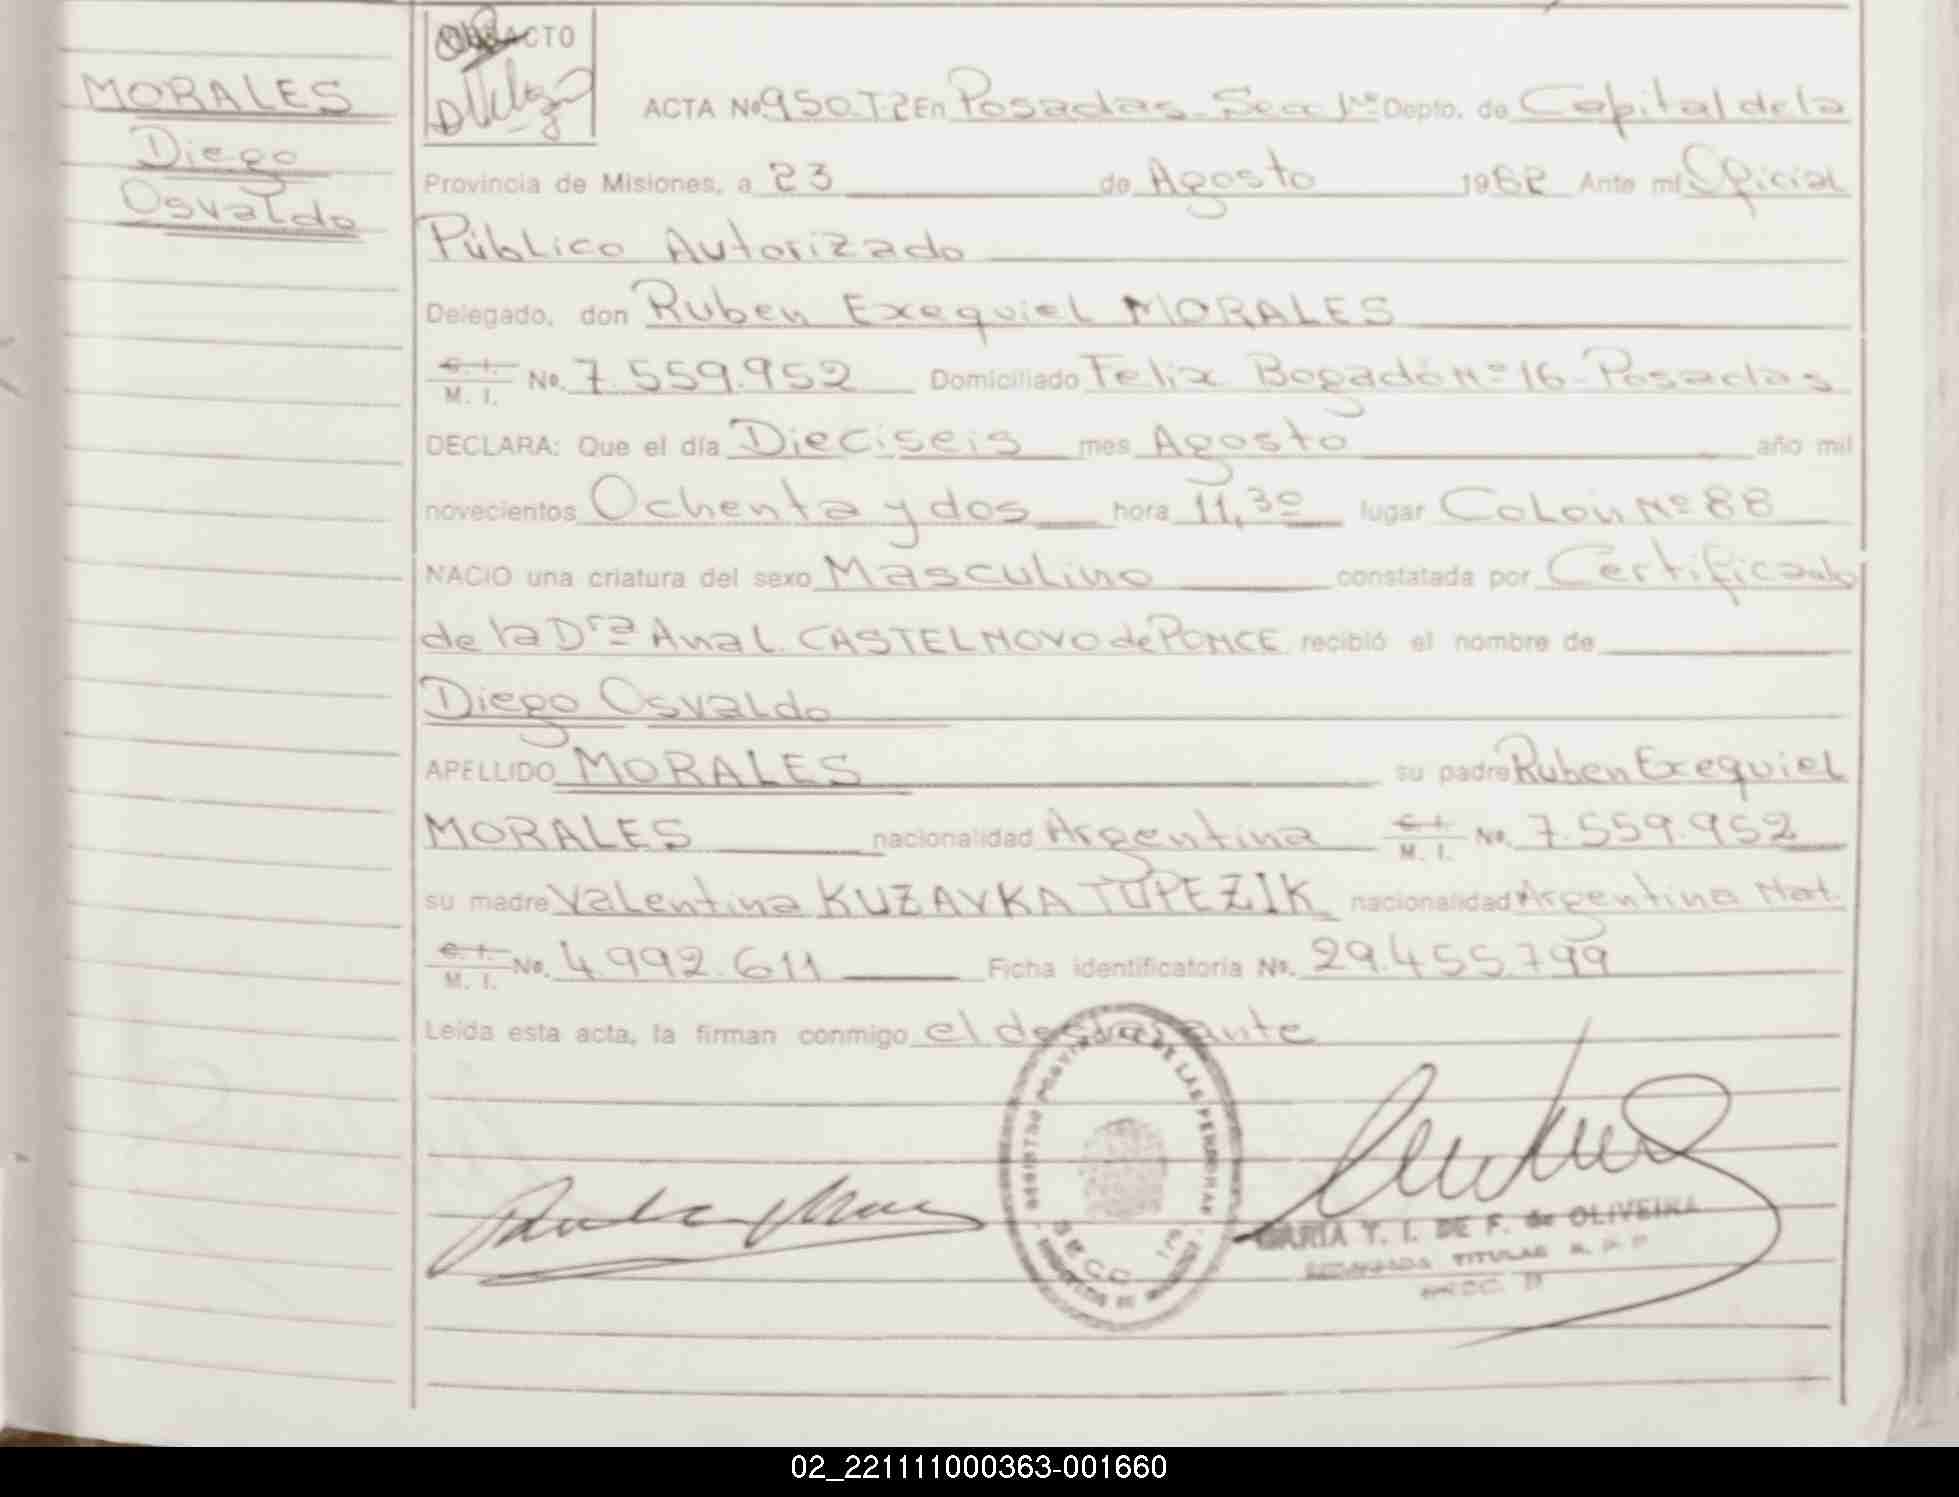 MORALES
Diego
Osvaldo
ACTO
ACTA Nº 950.T-2 En Posadas - Sec 1ra Depto. de Capital de la
Provincia de Misiones, a 23 de Agosto 1982 Ante mí Oficial
Público Autorizado
Delegado, don Ruben Exequiel MORALES
C. I.
M. I. No. 7.559.952 Domiciliado Felix Bogado Nº 16 - Posadas
DECLARA: Que el día Dieciseis mes Agosto año mil
novecientos Ochenta y dos hora 11,30 lugar Colón Nº 88
NACIO una criatura del sexo Masculino constatada por Certificado
de la Dra Ana L. CASTELNOVO de PONCE recibió el nombre de
Diego Osvaldo
APELLIDO MORALES su padre Ruben Exequiel
MORALES nacionalidad Argentina C. I.
M. I. No. 7.559.952
su madre Valentina KUZAVKA TUPEZIK nacionalidad Argentina Nat.
C. I.
M. I. No. 4.992.611 Ficha identificatoria No. 29.455.799
Leída esta acta, la firman conmigo el declarante
REGISTRO PROVINCIAL DE LAS PERSONAS
MARIA Y. I. DE F. de OLIVEIRA
TITULAR
02_221111000363-001660